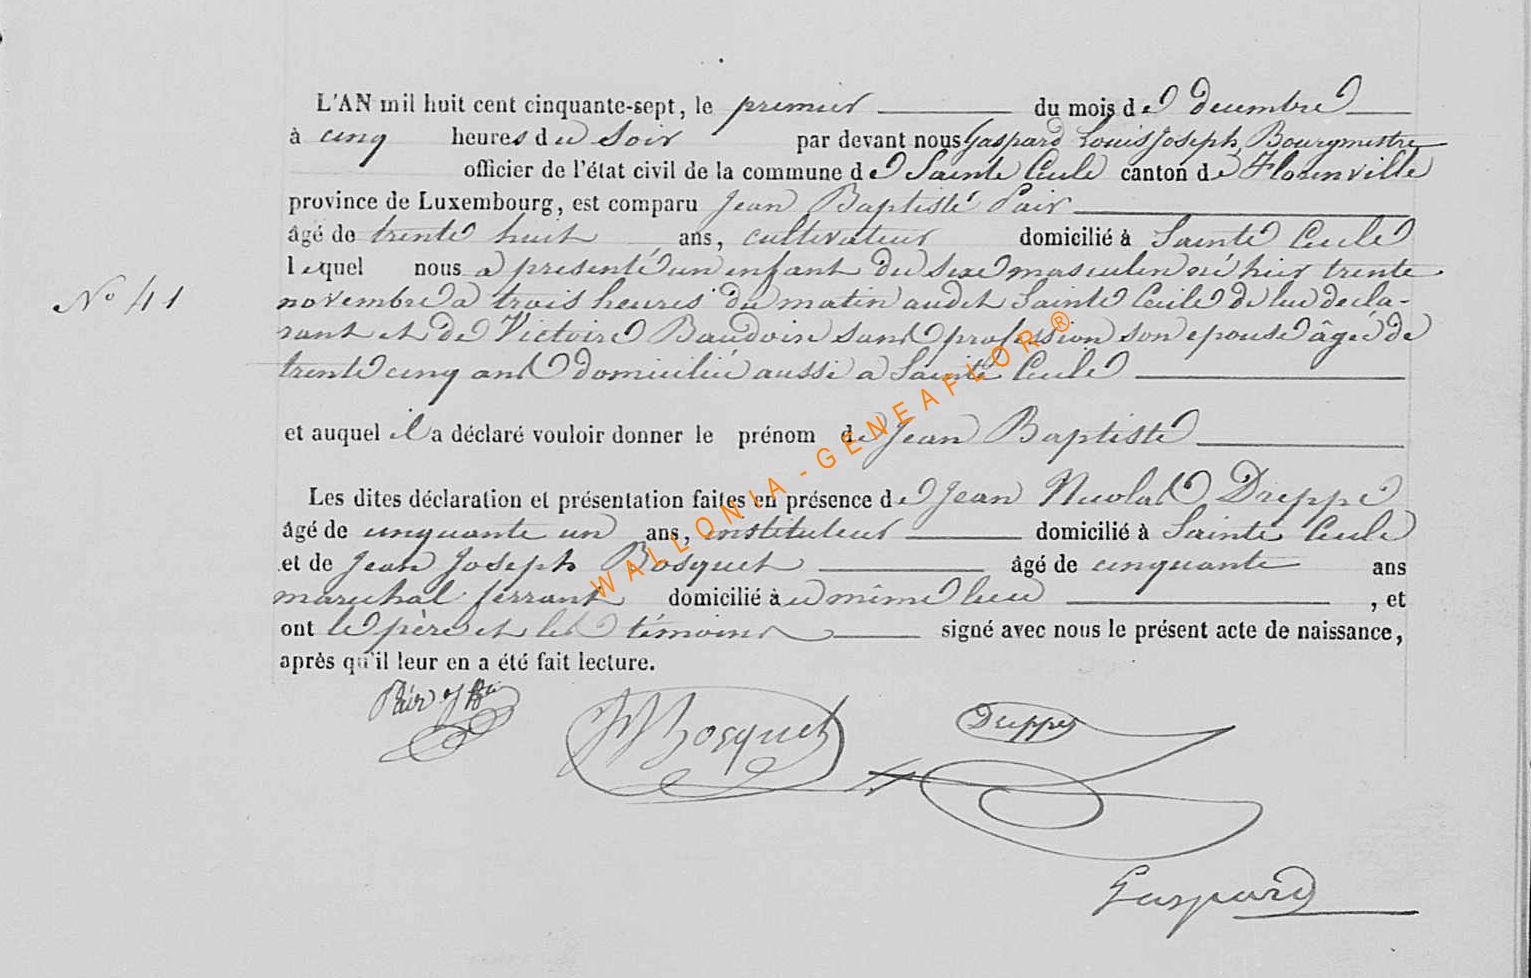 L'AN mil huit cent cinquante-sept, le premier du mois de decembre
à cinq heures du Soir par devant nous Gaspard Louis Joseph, Bourgmestre
officier de l'état civil de la commune de Sainte Cecile canton de Florenville
province de Luxembourg, est comparu Jean Baptiste Pair
âgé de trente huit ans, cultivateur domicilié à Sainte Cecile
lequel nous a presenté un enfant du sexe masculin né hier trente
N° 41
novembre a trois heures du matin audit Sainte Cecile de lui décla-
rant et de Victoire Baudoin sans profession son epouse âgée de
trente cinq ans domiciliée aussi a Sainte Cecile
et auquel il a déclaré vouloir donner le prénom de Jean Baptiste
Les dites déclaration et présentation faites en présence de Jean Nicolas Dreppe
âgé de cinquante un ans, instituteur domicilié à Sainte Cecile
et de Jean Joseph Bosquet âgé de cinquante ans
marechal ferrant domicilié à u même lieu , et
ont le père et les témoins signé avec nous le présent acte de naissance,
après qu'il leur en a été fait lecture.
Pair J Bte
JJ Bosquet
Dreppe
Gaspard
WALLONIA-GENEAFLOR®